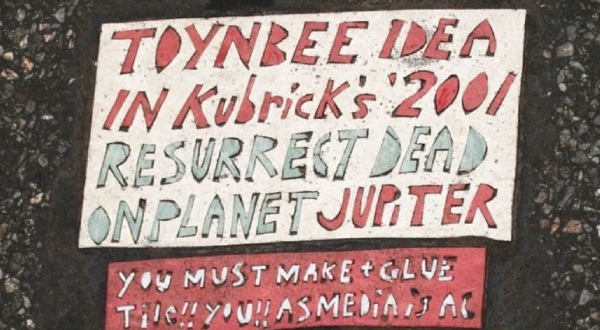 TOYNBEE IDEA
IN KUbRicK's '2001
RESURRECT DEAD
ON PLANET JUPiTER
YOU MUST MAKE + GLUE
TilE!! YOU!! AS MEDiA is AC